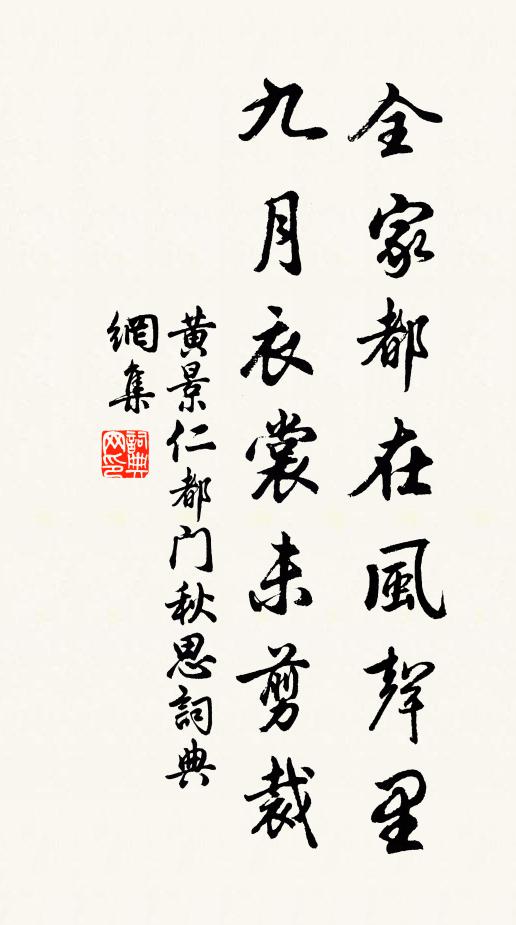 全家都在風聲里
九月衣裳未剪裁
黃景仁都门秋思詞典
網集
詞典
网印